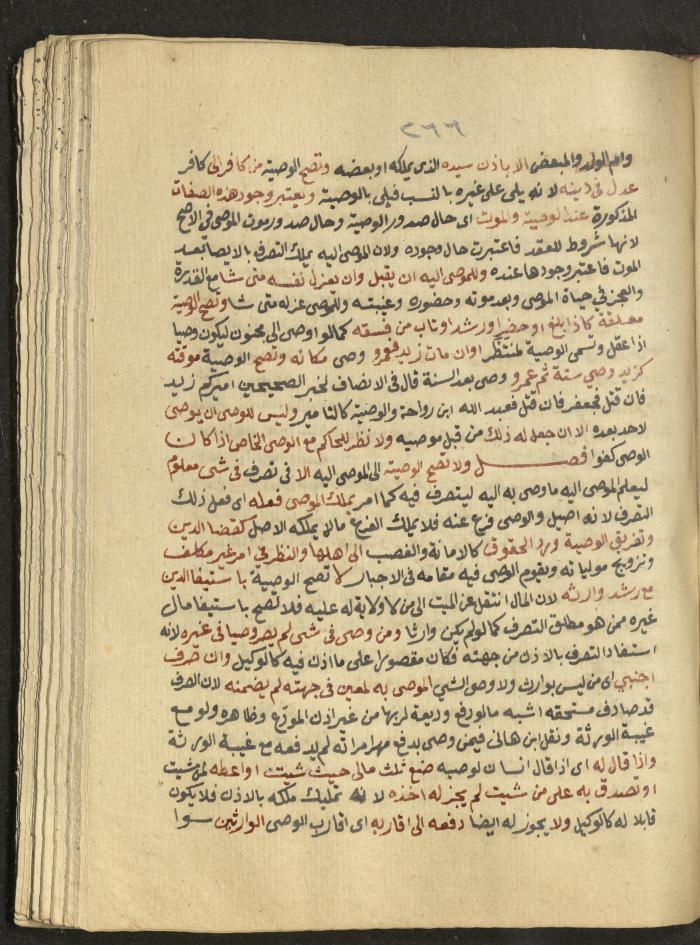 ٢٦٦
وام الولد والمبعض الا باذن سيده الذي يملكه او بعضه وتصح الوصية من كافر الى كافر
عدل في دينه لانه يلي على غيره بالنسب فيلي بالوصية ويعتبر وجود هذه الصفات
المذكورة عند الوصية والموت اي حال صدور الوصية وحال صدور موت الموصي في الاصح
لانها شروط للعقد فاعتبرت حال وجوده ولان الموصى اليه يملك التصرف بالايصا بعد
الموت فاعتبر وجودها عنده وللموصى اليه ان يقبل وان يعزل نفسه متى شا مع القدرة
والعجز في حياة الموصي وبعد موته وحضوره وغيبته وللموصي عزله متى شا وتصح الوصية
معلقة كاذا بلغ او حضر او رشد او تاب من فسقه كما لو اوصى الى مجنون ليكون وصيا
اذا عقل وتسمى الوصية لمنتظر او ان مات زيد فعمرو وصي مكانه وتصح الوصية موقتة
كزيد وصي سنة ثم عمرو وصي بعد السنة قال في الانصاف لخبر الصحيحين اميركم زيد
فان قتل فجعفر فان قتل فعبد الله ابن رواحة والوصية كالتامير وليس للوصي ان يوصي
لاحد بعده الا ان جعل له ذلك من قبل موصيه ولا نظر للحاكم مع الوصي الخاص اذا كان
الوصي كفوا فصل ولا تصح الوصية الى الموصى اليه الا في تصرف في شي معلوم
ليعلم الموصى اليه ما وصى به اليه ليتصرف فيه كما امر يملك الموصي فعله اي فعل ذلك
التصرف لانه اصيل والوصي فرع عنه فلا يملك الفرع ما لا يملكه الاصل كقضا الدين
وتفريق الوصية ورد الحقوق كالامانة والغصب الى اهلها والنظر في امر غير مكلف
وتزويج مولياته ويقوم الوصي فيه مقامه في الاجبار لا تصح الوصية باستيفا الدين
مع رشد وارثه لان المال انتقل عن الميت الى من لا ولاية له عليه فلا تصح باستيفا مال
غيره ممن هو مطلق التصرف كما لو لم يكن وارثا ومن وصي في شي لم يصر وصيا في غيره لانه
استفاد التصرف بالاذن من جهته فكان مقصورا على ما اذن فيه كالوكيل وان صرف
اجنبي اي من ليس بوارث ولا وصي الشي الموصى به لمعين في جهته لم يضمنه لان الصرف
قد صادف مستحقه اشبه ما لو دفع وديعة لربها من غير اذن المودع وظاهره ولو مع
غيبة الورثة ونقل ابن هاني فيمن وصى بدفع مهر امراته لم يدفعه مع غيبة الورثة
واذا قال له اي اذا قال انسان لوصيه ضع ثلث مالي حيث شيت او اعطه لمن شيت
او تصدق به على من شيت لم يجز له اخذه لانه تمليك ملكه بالاذن فلا يكون
قابلا له كالوكيل ولا يجوز له ايضا دفعه الى اقاربه اي اقارب الوصي الوارثين سوا